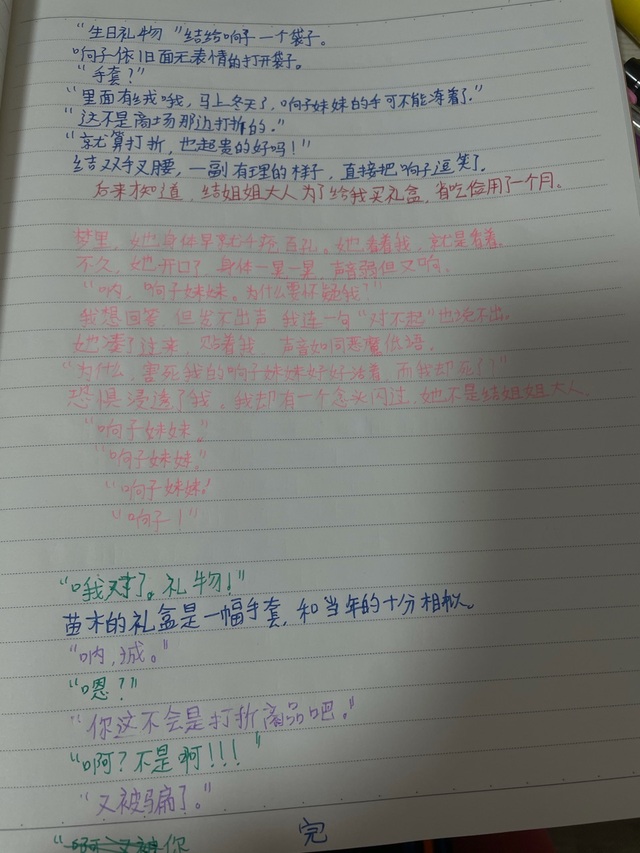 “生日礼物”结给响子一个袋子。
响子依旧面无表情的打开袋子。
“手套？”
“里面有绒哦，马上冬天了，响子妹妹的手可不能冻着了。”
“这不是商场那边打折的。”
“就算打折，也超贵的好吗！”
结双手叉腰，一副有理的样子，直接把响子逗笑了。
后来才知道，结姐姐大人为了给我买礼盒，省吃俭用了一个月。
梦里，她身体早就千疮百孔。她看着我，就是看着。
不久，她开口了，身体一晃一晃，声音弱但又响。
“呐，响子妹妹。为什么要怀疑我？”
我想回答，但发不出声，我连一句“对不起”也说不出。
她凑了过来，贴着我，声音如同恶魔低语。
“为什么，害死我的响子妹妹好好活着，而我却死了！”
恐惧浸透了我。我却有一个念头闪过，她不是结姐姐大人。
“响子妹妹。”
“响子妹妹。”
“响子妹妹！”
“响子！”
“哦对了。礼物！”
苗木的礼盒是一幅手套，和当年的十分相似。
“呐，诚。”
“嗯？”
“你这不会是打折商品吧。”
“啊？不是啊！！！”
“又被骗了。”
完